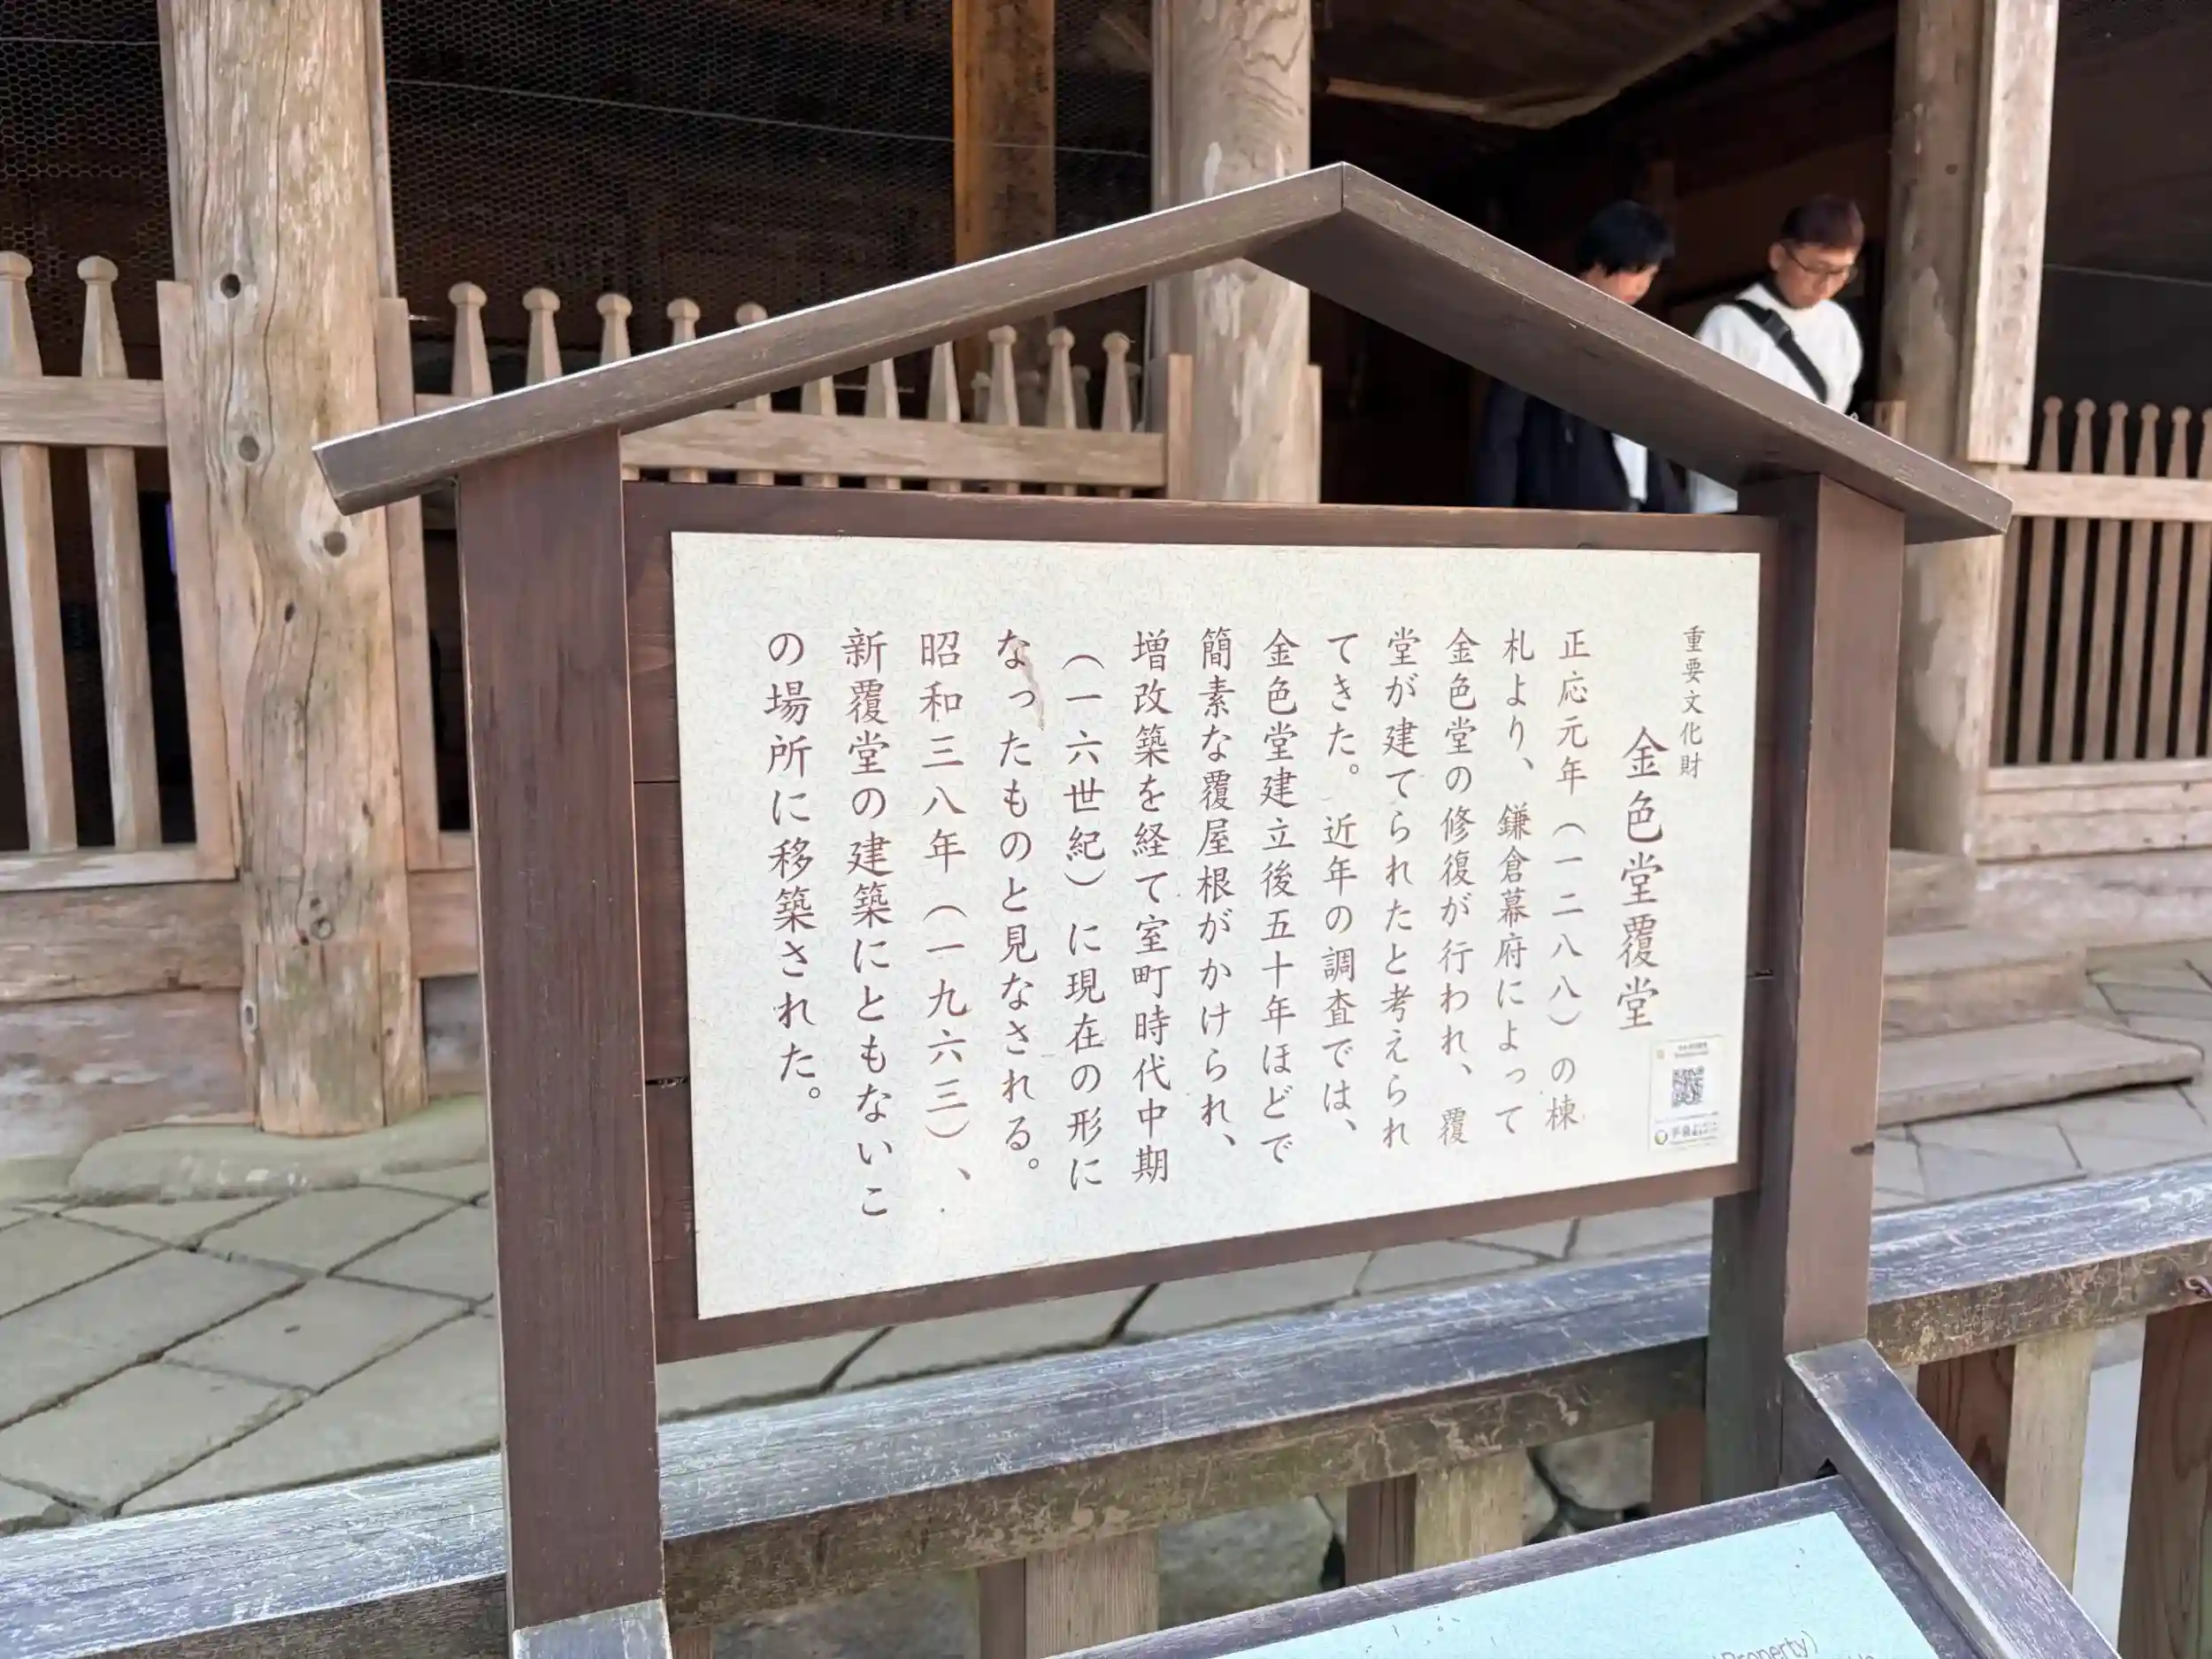 重要文化財
金色堂覆堂
正応元年（一二八八）の棟
札より、鎌倉幕府によって
金色堂の修復が行われ、覆
堂が建てられたと考えられ
てきた。近年の調査では、
金色堂建立後五十年ほどで
簡素な覆屋根がかけられ、
増改築を経て室町時代中期
（一六世紀）に現在の形に
なったものと見なされる。
昭和三八年（一九六三）、
新覆堂の建築にともないこ
の場所に移築された。
Property)